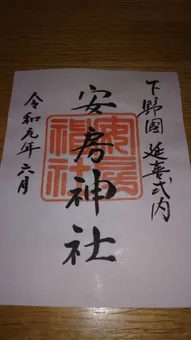 下野國 延喜式内
安房神社
安房神社
令和元年 六月